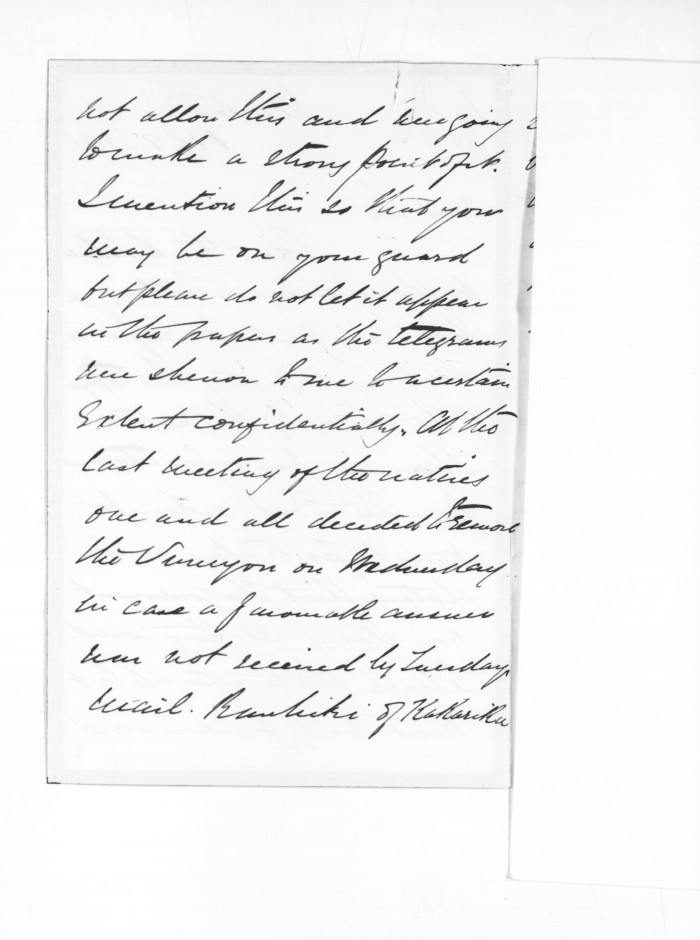 not allow this and are going
to make a strong point of it.
I mention this so that you
may be on your guard
but please do not let it appear
in the papers as the telegrams
were shewn to me to a certain
extent confidentially. At the
last meeting of the natives
one and all decided to remove
the Surveyor on Wednesday
in case a favorable answer
was not received by Tuesdays
mail. of Kakariki